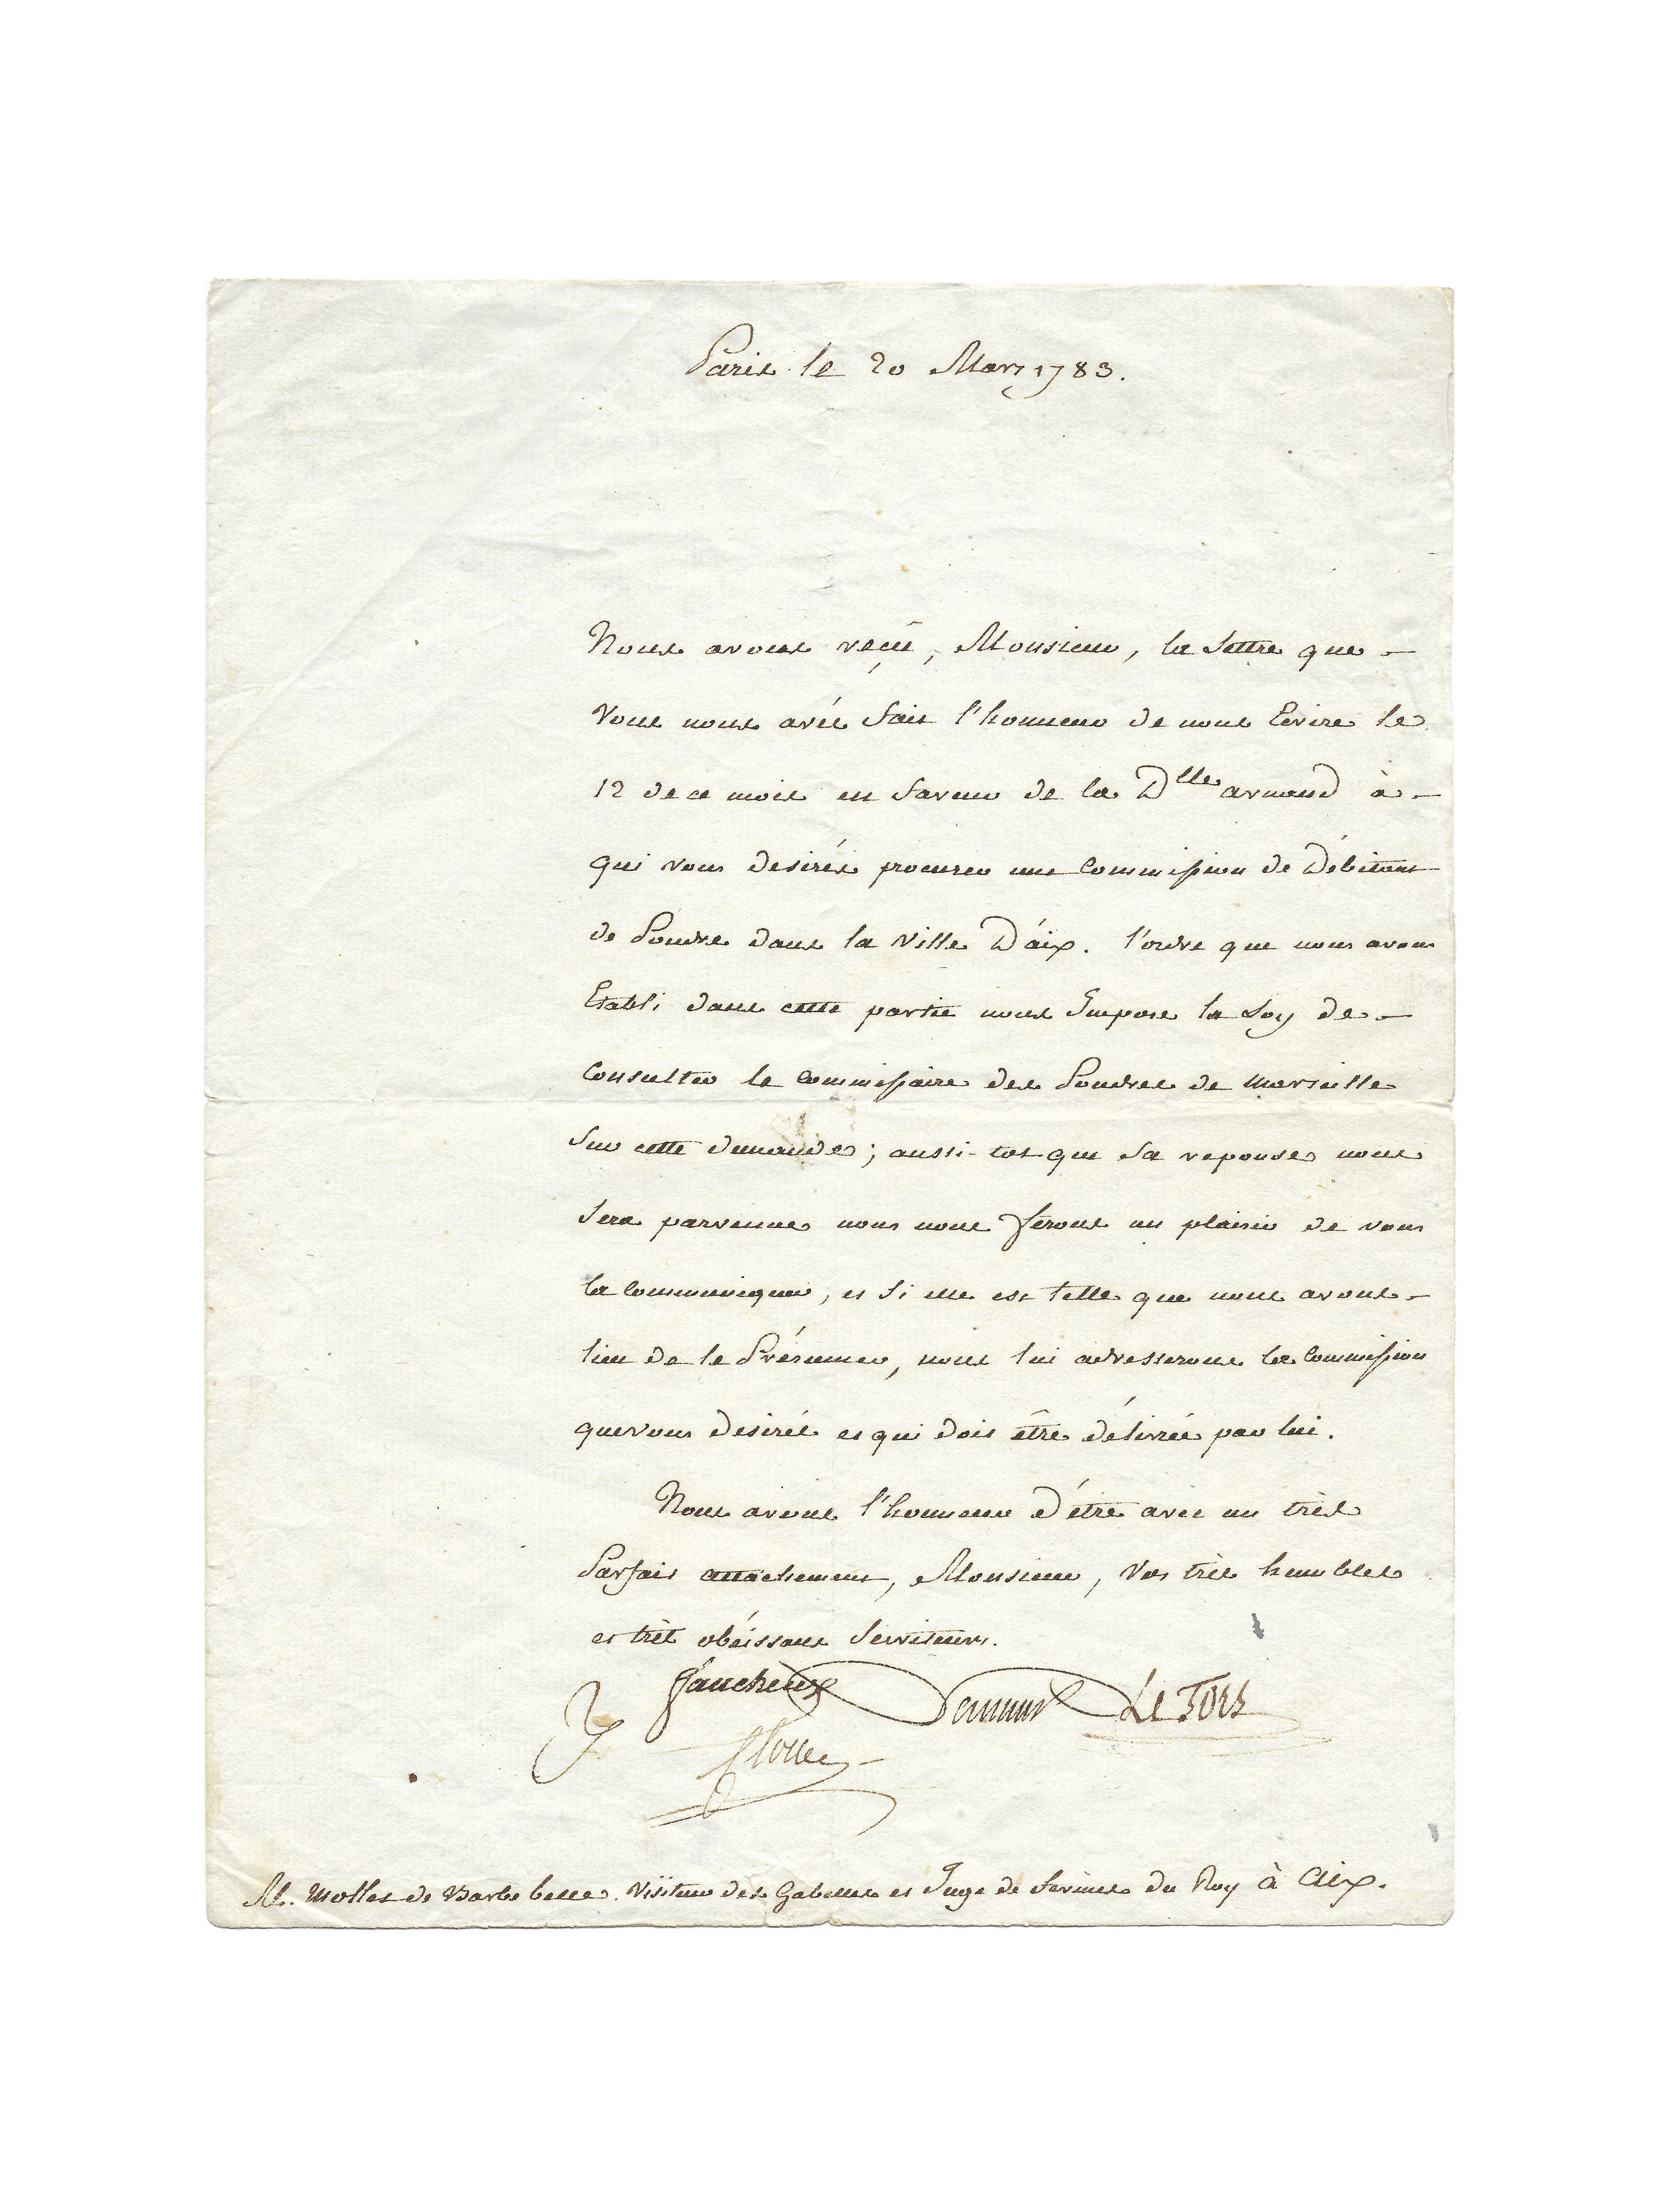 Paris le 20 Mars 1783.
Nous avons reçû, Monsieur, la Lettre que
Vous nous avés fait l'honneur de nous Ecrire le
12 de ce mois en faveur de la Dlle armand à
qui vous desirés procurer une Commission de Débitant
de Poudre dans la Ville D'aix. l'ordre que nous avons
Etabli dans cette partie nous Impose la Loy de
Consulter le Commissaire des Poudres de Marseille
Sur cette demande; aussi-tot que Sa reponse nous
Sera parvenue nous nous ferons un plaisir de vous
la Communiquer, et Si elle est telle que nous avons
lieu de le Présumer, nous lui adresserons la Commission
que vous desirés et qui doit être délivrée par lui.
Nous avons l'honneur d'être avec un très
Parfait attachement, Monsieur, Vos très humbles
et très obéissans Serviteurs.
faucheux Le Tors
Clouet
M. de Barbebelle. Visiteur des Gabelles et Juge de du Roy à Aix.